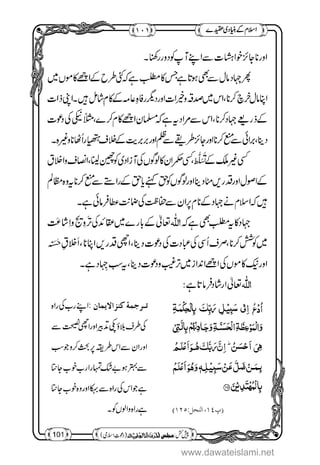 اسلام کے بنیادی عقیدے
١٠١
اور ناجائز خواہشات سے اپنے آپ کو دور رکھنا۔
پھر جہاد مال سے بھی ہوتا ہے جس کا مطلب ہے کہ کئی طرح کے اچھے کاموں میں
اپنا مال خرچ کرنا، اس میں صدقہ و خیرات اور دیگر رفاہِ عامہ کے کام شامل ہیں۔ اپنی ذات
کے ذریعے جہاد کرنا، اس سے مراد یہ ہے کہ مسلمان اچھے کام کرے، مثلاً نیکی کی دعوت
دینا، برائی سے منع کرنا اور جائز طریقے سے ظلم اور بربریت کے خلاف ہتھیار اٹھانا وغیرہ۔
کسی غیر ملک کے لوگوں کی آزادی کو چھین لینا، انصاف و اخلاق
کے اصول اور قدریں مٹا دینا اور لوگوں کو حق کہنے یا حق کے راستے سے منع کرنا یہ وہ مظالم
ہیں کہ اسلام نے جہاد کے نام پر ان سے حفاظت کی ضمانت عطا فرمائی ہے۔
جہاد کا یہ مطلب بھی ہے کہ اللہ تعالٰی کے بارے میں عقائد کی ترویج و اشاعت
میں کوشش کرنا، صرف اُسی کی عبادت کی دعوت دینا، اچھی قدریں اپنانا، اَخلاقِ حَسَنہ
اور نیک کاموں کی اچھے انداز میں ترغیب و دعوت دینا، یہ سب جہاد ہے۔
اللہ تعالٰی ارشاد فرماتا ہے:
اُدْعُ اِلٰى سَبِیْلِ رَبِّكَ بِالْحِكْمَةِ
وَ الْمَوْعِظَةِ الْحَسَنَةِ وَ جَادِلْهُمْ بِالَّتِیْ
هِیَ اَحْسَنُؕ اِنَّ رَبَّكَ هُوَ اَعْلَمُ
بِمَنْ ضَلَّ عَنْ سَبِیْلِهٖ وَ هُوَ اَعْلَمُ
بِالْمُهْتَدِیْنَ
(پ١٤، النحل: ١٢٥)
ترجمۂ کنز الایمان: اپنے رب کی راہ
کی طرف بلاؤ پکی تدبیر اور اچھی نصیحت سے
اور ان سے اس طریقہ پر بحث کرو جو سب
سے بہتر ہو بے شک تمہارا رب خوب جانتا
ہے جو اس کی راہ سے بہکا اور وہ خوب جانتا
ہے راہ والوں کو۔
101
پیش کش: مجلس المدینۃ العلمیۃ (دعوتِ اسلامی)
www.dawateislami.net